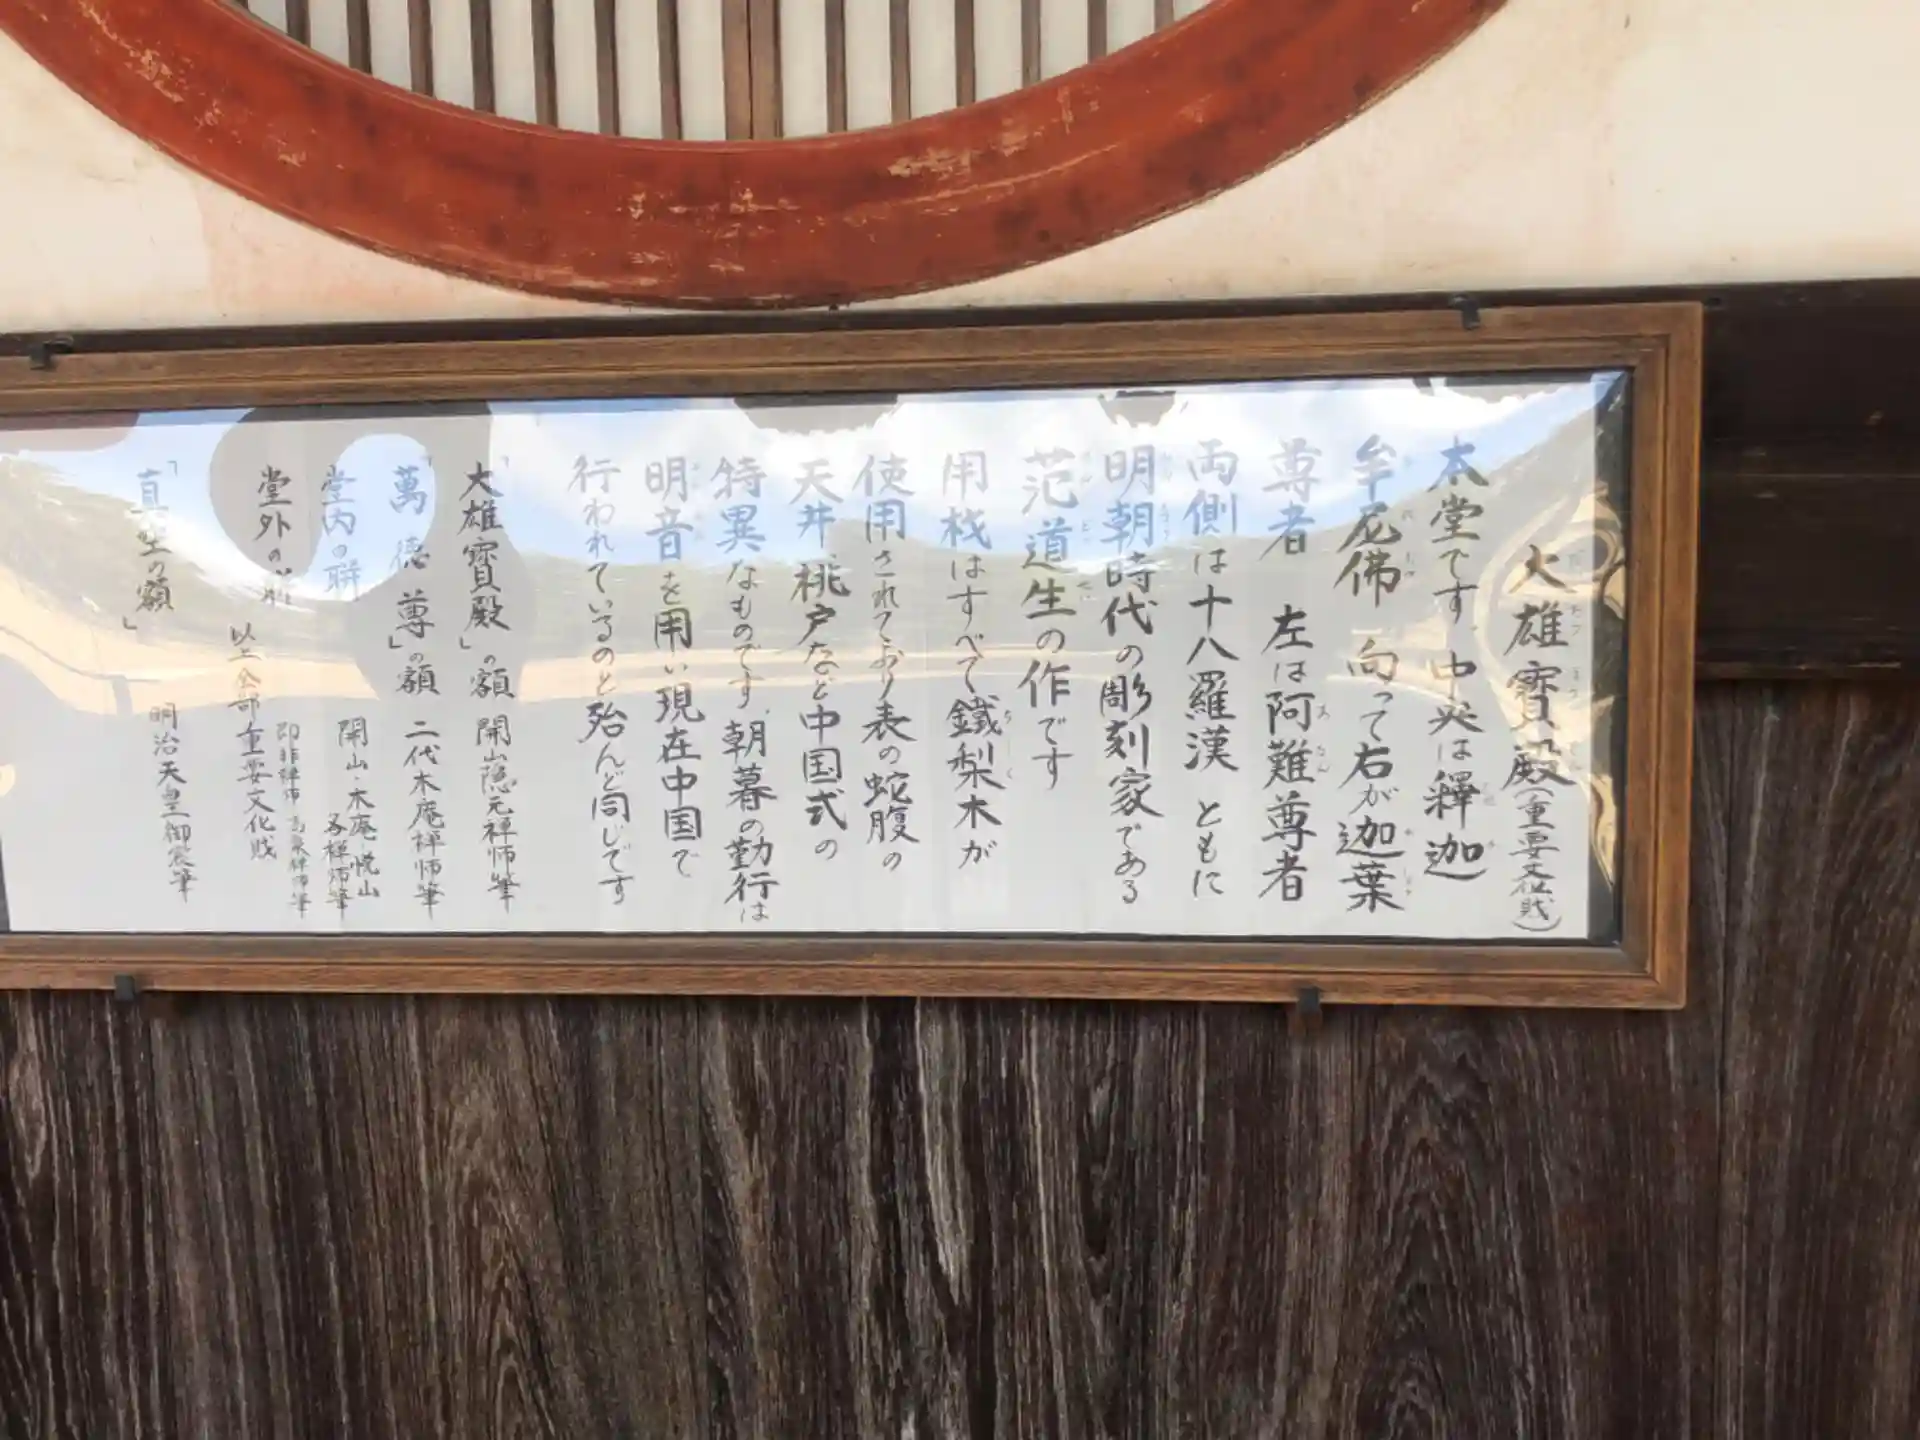 大雄寳殿(重要文化財)
本堂です。中央は釋迦
牟尼佛 向って右が迦葉
尊者 左は阿難尊者
両側は十八羅漢 ともに
明朝時代の彫刻家である
范道生の作です
用材はすべて鐵梨木が
使用されており表の蛇腹の
天井、桃戸など中国式の
特異なものです。朝暮の勤行は
明音を用い現在中国で
行われているのと殆んど同じです
「大雄寳殿」の額 開山隠元禅師筆
「萬徳尊」の額 二代木庵禅師筆
堂内の聯 開山・木庵・悦山
各禅師筆
堂外の聯 即非禅師 高泉禅師筆
以上全部重要文化財
「真空の額」 明治天皇御宸筆